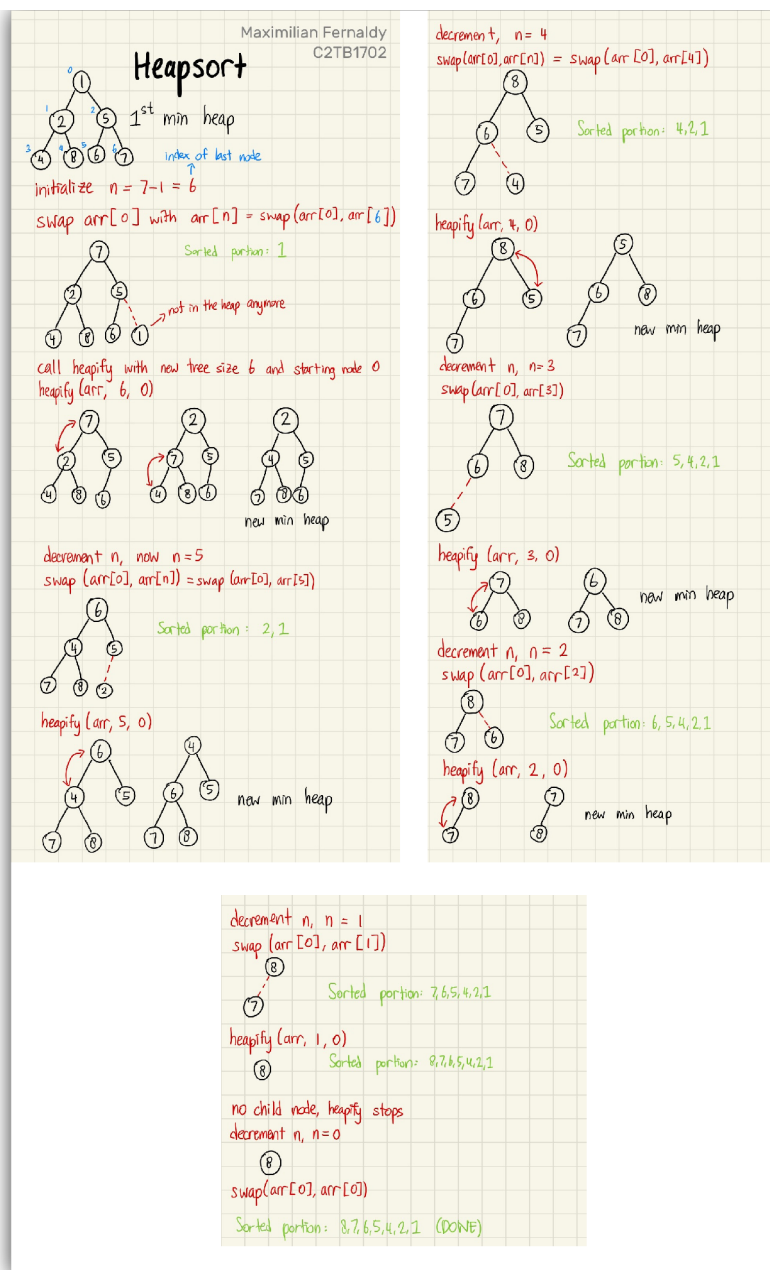 Maximilian Fernaldy
C2TB1702
Heapsort
0
1
1 2
2 5
1st min heap
3 4 5 6
4 8 6 7
index of last node
initialize n = 7-1 = 6
swap arr[0] with arr[n] = swap(arr[0], arr[6])
7
Sorted portion: 1
2 5
not in the heap anymore
4 8 6 1
call heapify with new tree size 6 and starting node 0
heapify (arr, 6, 0)
7 2 2
2 5 7 5 4 5
4 8 6 4 8 6 7 8 6
new min heap
decrement n, now n=5
swap (arr[0], arr[n]) = swap (arr[0], arr[5])
6
Sorted portion: 2,1
4 5
7 8 2
heapify (arr, 5, 0)
6 4
4 5 6 5
new min heap
7 8 7 8
decrement, n= 4
swap(arr[0],arr[n]) = swap(arr [0], arr[4])
8
6 5
Sorted portion: 4,2,1
7 4
heapify (arr, 4, 0)
8 5
6 5 6 8
7 7
new min heap
decrement n, n=3
swap(arr[0], arr[3])
7
6 8
Sorted portion: 5,4,2,1
5
heapify (arr, 3, 0)
7 6
6 8 7 8
new min heap
decrement n, n = 2
swap (arr[0], arr[2])
8
7 6
Sorted portion: 6,5,4,2,1
heapify (arr, 2, 0)
8 7
7 8
new min heap
decrement n, n = 1
swap (arr [0], arr [1])
8
7
Sorted portion: 7,6,5,4,2,1
heapify (arr, 1, 0)
8
Sorted portion: 8,7,6,5,4,2,1
no child node, heapify stops
decrement n, n=0
8
swap(arr[0], arr[0])
Sorted portion: 8,7,6,5,4,2,1 (DONE)